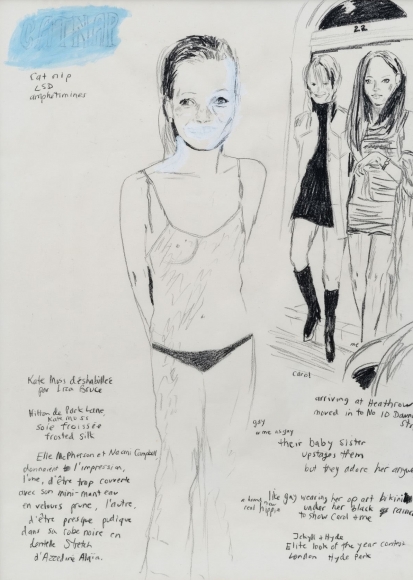 CATNAP
Catnip
LSD
amphetimines
22
me
carol
Kate Moss déshabillée
par Lisa Bruce
Hilton de Park Lane
Kate Moss
soie froissée
frosted silk
Elle McPherson et Naomi Campbell
donnaient l'impression,
l'une, d'être trop couverte
avec son mini-manteau
en velours prune, l'autre,
d'être presque pudique
dans sa robe noire en
dentelle Stretch
d'Azzedine Alaïa.
arriving at Heathrow
moved in to No 10
gay
their baby sister
upstages them
but they adore her
real hippie
like gay wearing her op art bikini
under her black
to show carol + me
Jekyll + Hyde
Elite look of the year contest
London Hyde Park